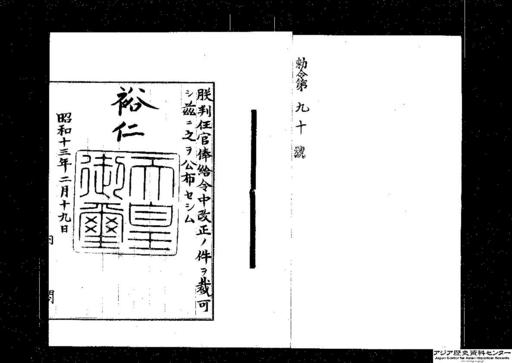 勅令第九十號
朕判任官俸給令中改正ノ件ヲ裁可
シ茲ニ之ヲ公布セシム
裕仁
天皇
御璽
昭和十三年二月十九日
内閣
アジア歴史資料センター
Japan Center for Asian Historical Records